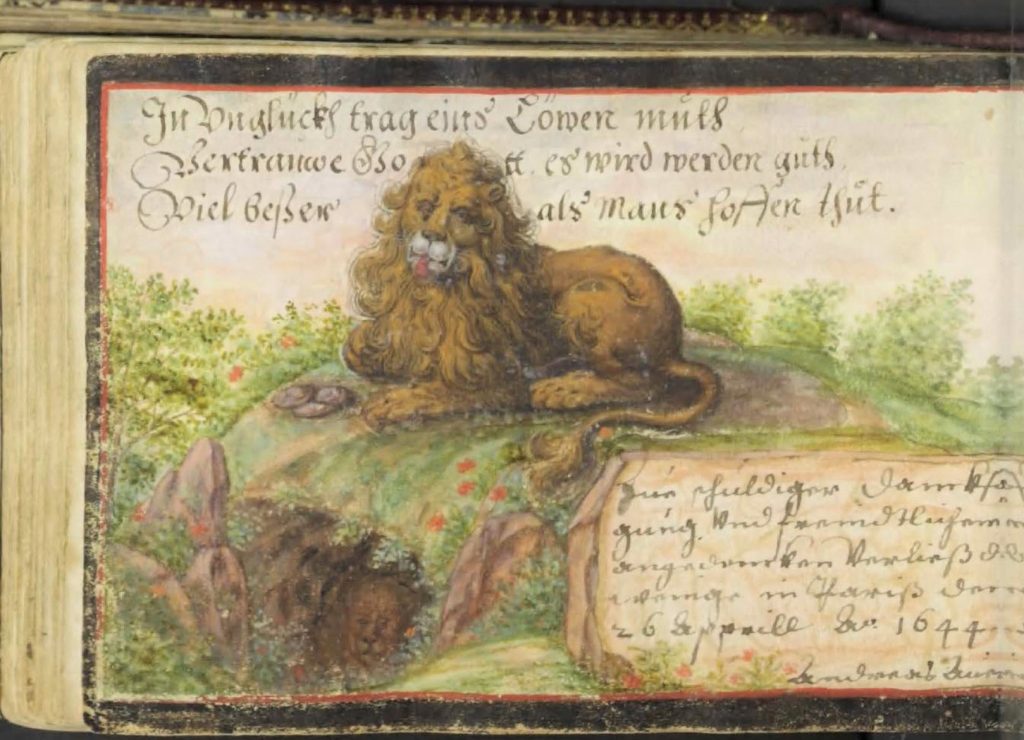 In Vnglückh trag eins Löwen muth
Vertrauwe Gott, es wird werden guth,
Viel beßer als mans hoffen thut.
Zue schuldiger dancksa
gung, Vnd freindtlichem
angedencken Verließ d
wenige in Pariß den
26 Apprill Aº 1644
Andreas